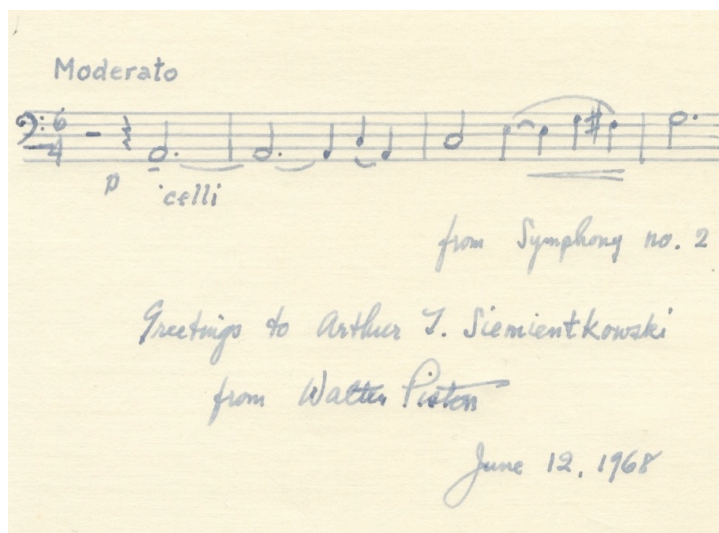 Moderato
6
4
p
'celli
from Symphony no. 2
Greetings to Arthur J. Siemientkowski
from Walter Piston
June 12, 1968